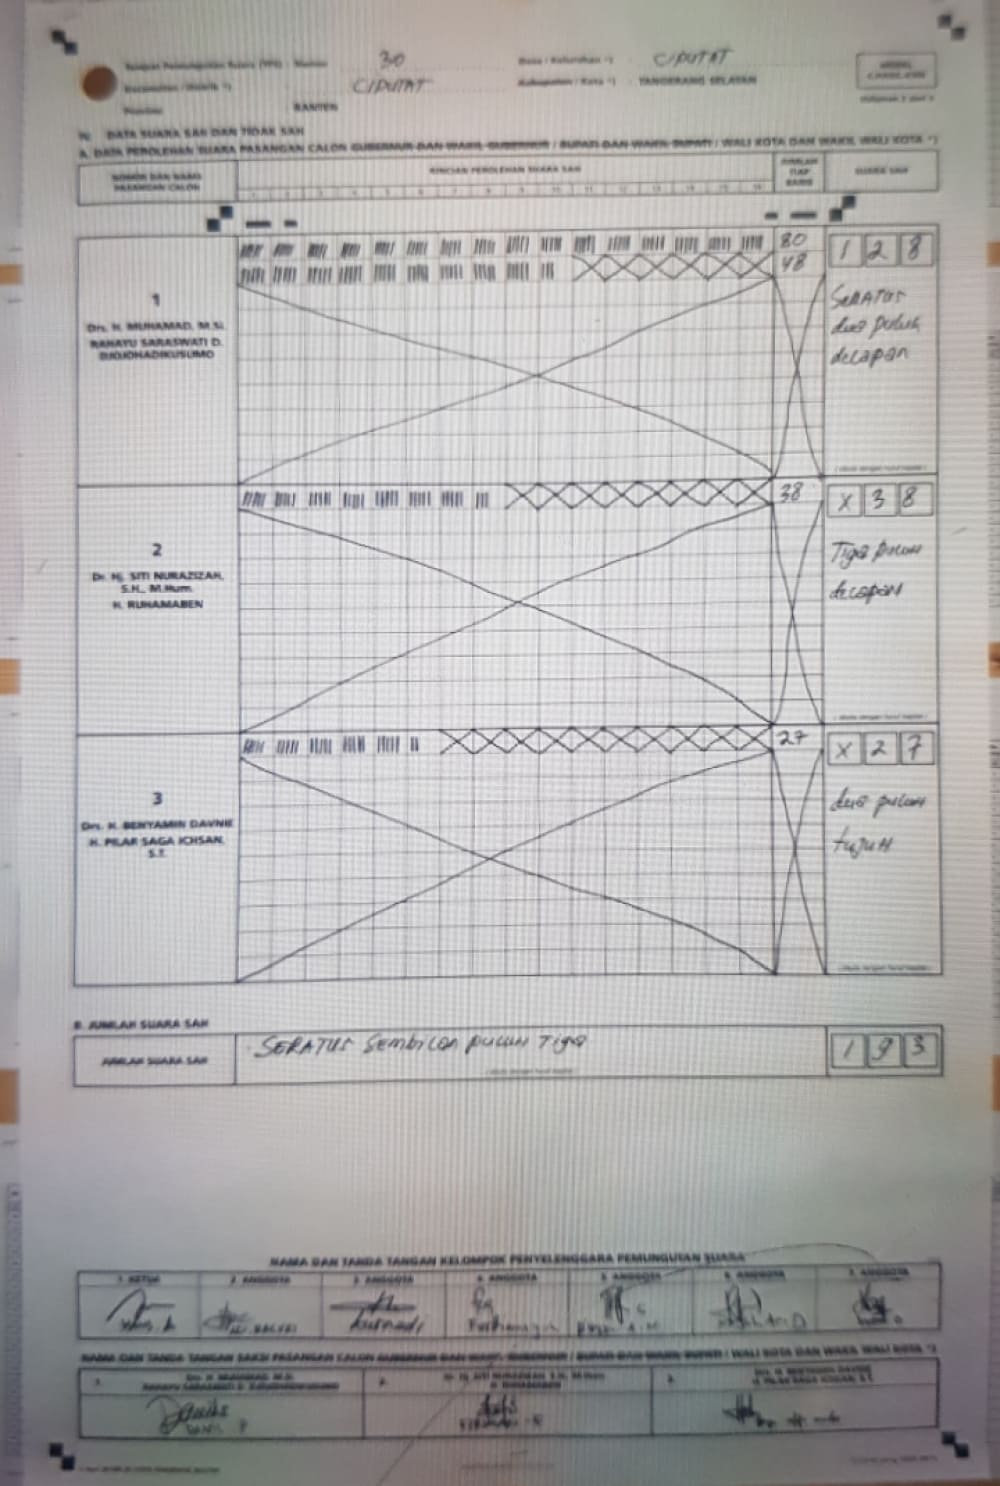 Tempat Pemungutan Suara (TPS) : Nomor 30 Desa / Kelurahan *) : CIPUTAT
Kecamatan / Distrik *) CIPUTAT Kabupaten / Kota *) : TANGERANG SELATAN
Provinsi BANTEN
IV. DATA SUARA SAH DAN TIDAK SAH
A. DATA PEROLEHAN SUARA PASANGAN CALON GUBERNUR DAN WAKIL GUBERNUR / BUPATI DAN WAKIL BUPATI / WALI KOTA DAN WAKIL WALI KOTA *)
NOMOR DAN NAMA PASANGAN CALON
RINCIAN PEROLEHAN SUARA SAH
JUMLAH TIAP BARIS
SUARA SAH
1 2 3 4 5 6 7 8 9 10 11 12 13 14 15 16
1
Drs. H. MUHAMAD, M.Si.
RAHAYU SARASWATI D.
DJOJOHADIKUSUMO
80
48
1 2 8
SERATUS
dua puluh
delapan
2
Dr. Hj. SITI NURAZIZAH,
S.H., M.Hum.
H. RUHAMABEN
38
X 3 8
Tiga puluh
delapan
3
Drs. H. BENYAMIN DAVNIE
H. PILAR SAGA ICHSAN,
S.T.
27
X 2 7
dua puluh
tujuh
B. JUMLAH SUARA SAH
JUMLAH SUARA SAH SERATUS Sembilan puluh Tiga 1 9 3
NAMA DAN TANDA TANGAN KELOMPOK PENYELENGGARA PEMUNGUTAN SUARA
1. KETUA 2. ANGGOTA 3. ANGGOTA 4. ANGGOTA 5. ANGGOTA 6. ANGGOTA 7. ANGGOTA
NAMA DAN TANDA TANGAN SAKSI PASANGAN CALON GUBERNUR DAN WAKIL GUBERNUR / BUPATI DAN WAKIL BUPATI / WALI KOTA DAN WAKIL WALI KOTA *)